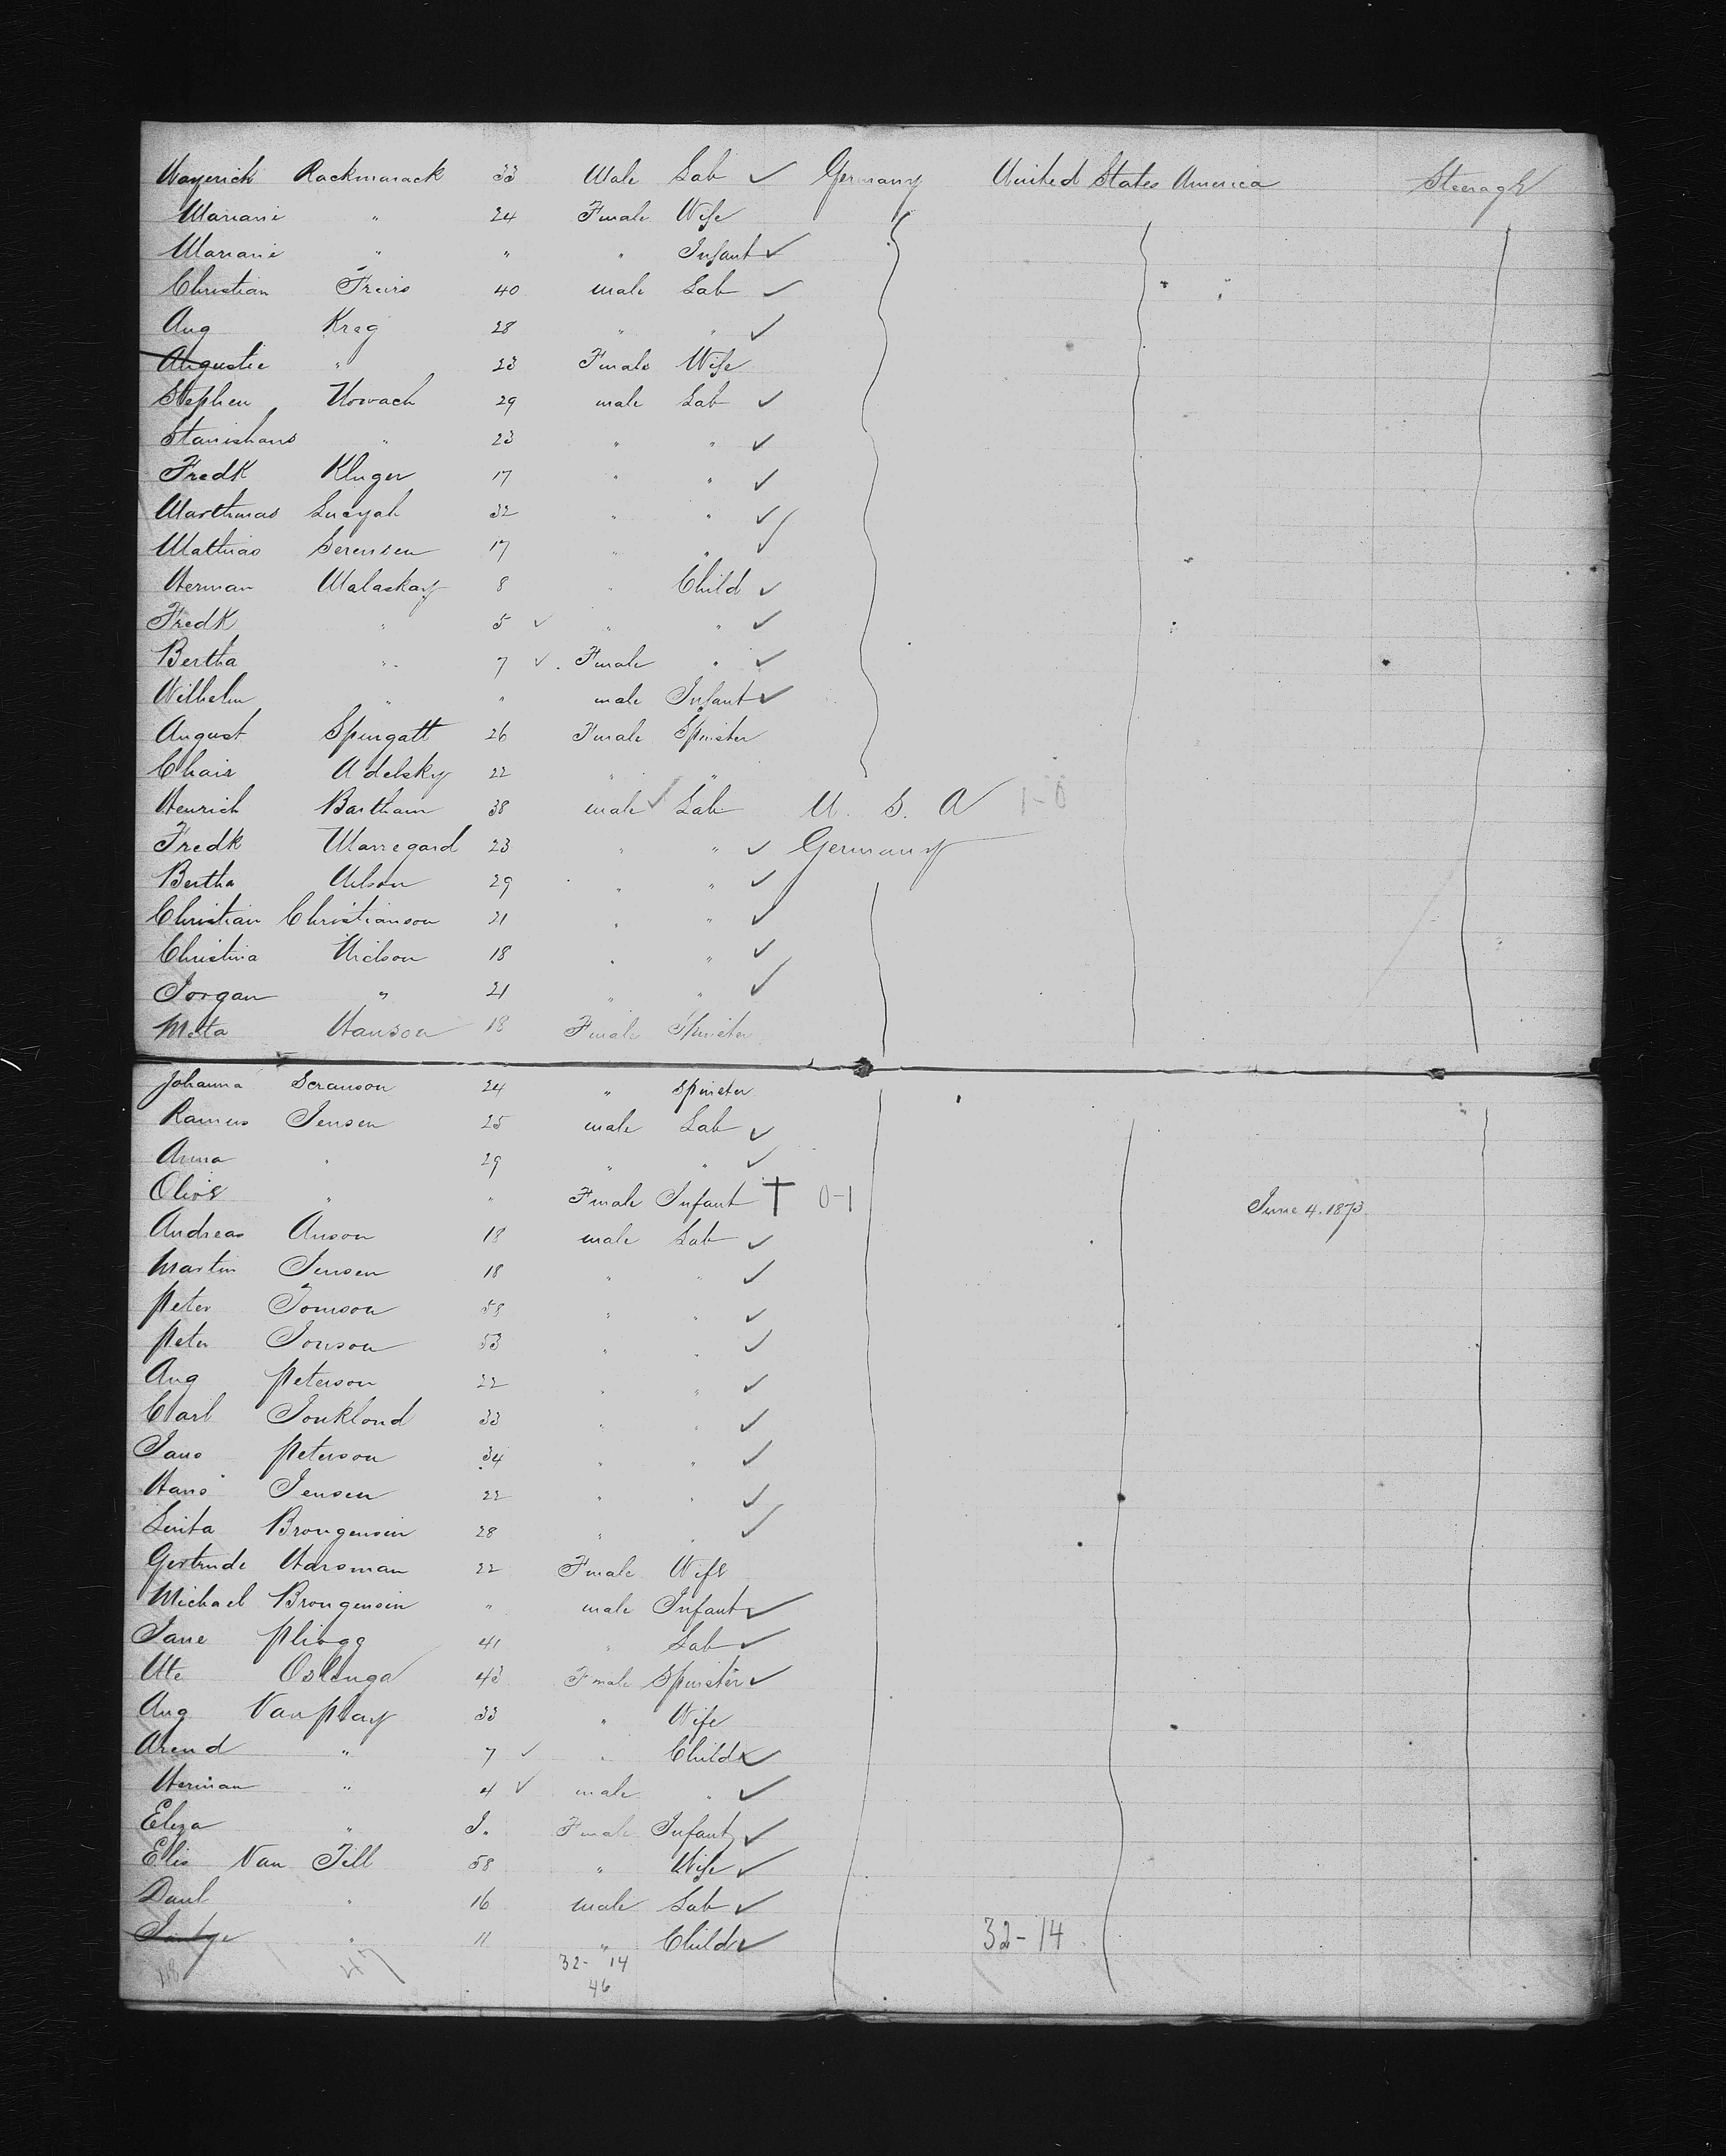 Wayerich Rackmarack 33 Male Lab ✓ Germany United States America Steerage
Mariane " 24 Female Wife
Mariane " " " Infant ✓
Christian Freirs 40 male Lab ✓
Aug Kreg 28 " " ✓
Augustie " 23 Female Wife
Stephen Nowach 29 male Lab ✓
Stanishaus " 23 " " ✓
Fredk Kluger 17 " " ✓
Marthmas Lucyah 32 " " ✓
Mathias Serensen 17 " " ✓
Herman Malaskay 8 " Child ✓
Fredk " 5 ✓ " " ✓
Bertha " 7 ✓ Female " ✓
Wilhelm " " male Infant ✓
August Spurgatt 26 Female Spinster
Chais Adelsky 22 " "
Henrich Bartham 38 male ✓ Lab U. S. A 1-0
Fredk Marregard 23 " " ✓ Germany
Bertha Nelson 29 " " ✓
Christian Christianson 21 " " ✓
Christina Nielson 18 " " ✓
Jorgan " 21 " " ✓
Meta Hanson 18 Female Spinster
Johanna Seranson 24 " Spinster
Ramus Jensen 25 male Lab ✓
Anna " 29 " " ✓
Olivε " " Female Infant † 0-1 June 4. 1873
Andreas Anson 18 male Lab ✓
Martin Jensen 18 " " ✓
Peter Jomson 58 " " ✓
Peter Jonson 53 " " ✓
Aug Peterson 22 " " ✓
Carl Jonklond 33 " " ✓
Jans Peterson 34 " " ✓
Hans Jensen 22 " " ✓
Senta Brongensin 28 " " ✓
Gertrude Harsman 22 Female Wife
Michael Brongensin " male Infant ✓
Jane Pliogg 41 " Lab ✓
Ute Oslenga 43 Female Spinster ✓
Aug Van Play 33 " Wife
Arend " 7 ✓ " Child ✓
Herman " 4 ✓ male " ✓
Eliza " I. Female Infant ✓
Elis Van Tell 58 " Wife ✓
Paul " 16 male Lab ✓
" 11 " Child ✓ 32-14
47 32- 14
46